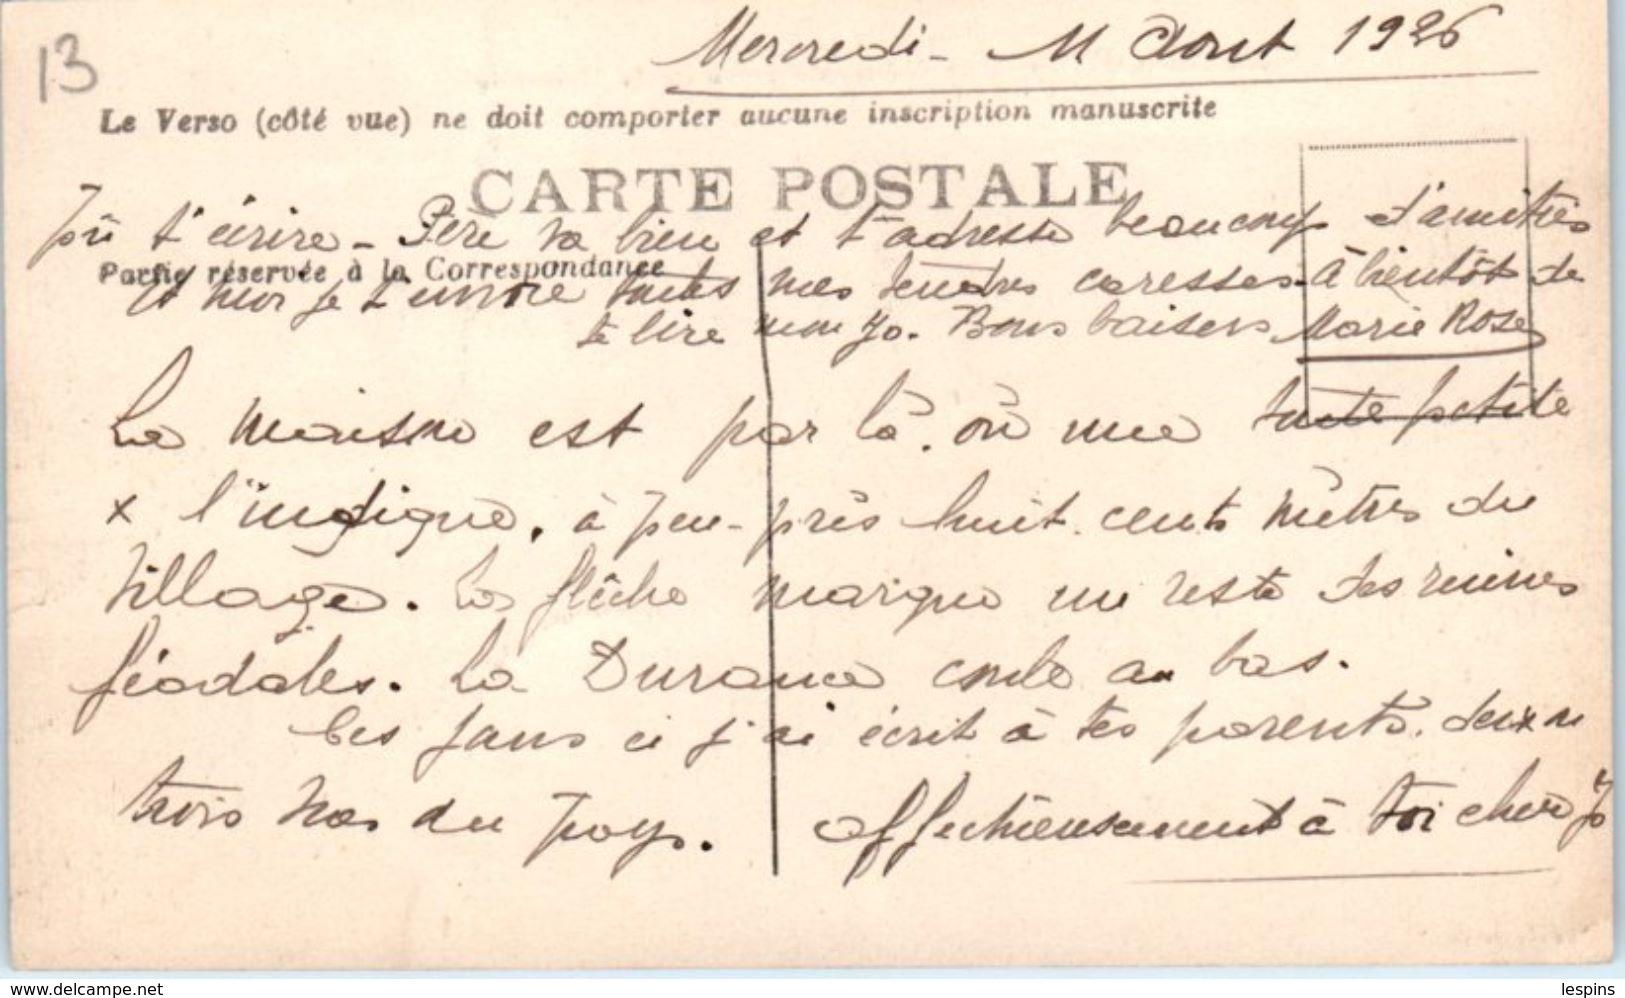 13
Mercredi - 11 Aout 1926
Le Verso (côté vue) ne doit comporter aucune inscription manuscrite
CARTE POSTALE
t'écrire - Père va bien et t'adresse beaucoup d'amitiés
Partie réservée à la Correspondance
et moi je t'envoie toutes mes tendres caresses. A bientôt de
te lire mon Jo. Bons baisers Marie Rose
La maison est par là, où une toute petite
x l'indique, à peu-près huit cents mètres du
village. La flèche marque un reste des ruines
féodales. La Durance coule au bas.
Ces jours ci j'ai écrit à tes parents, deux ou
trois vues du pays. Affectueusement à toi cher Jo
delcampe.net
lespins